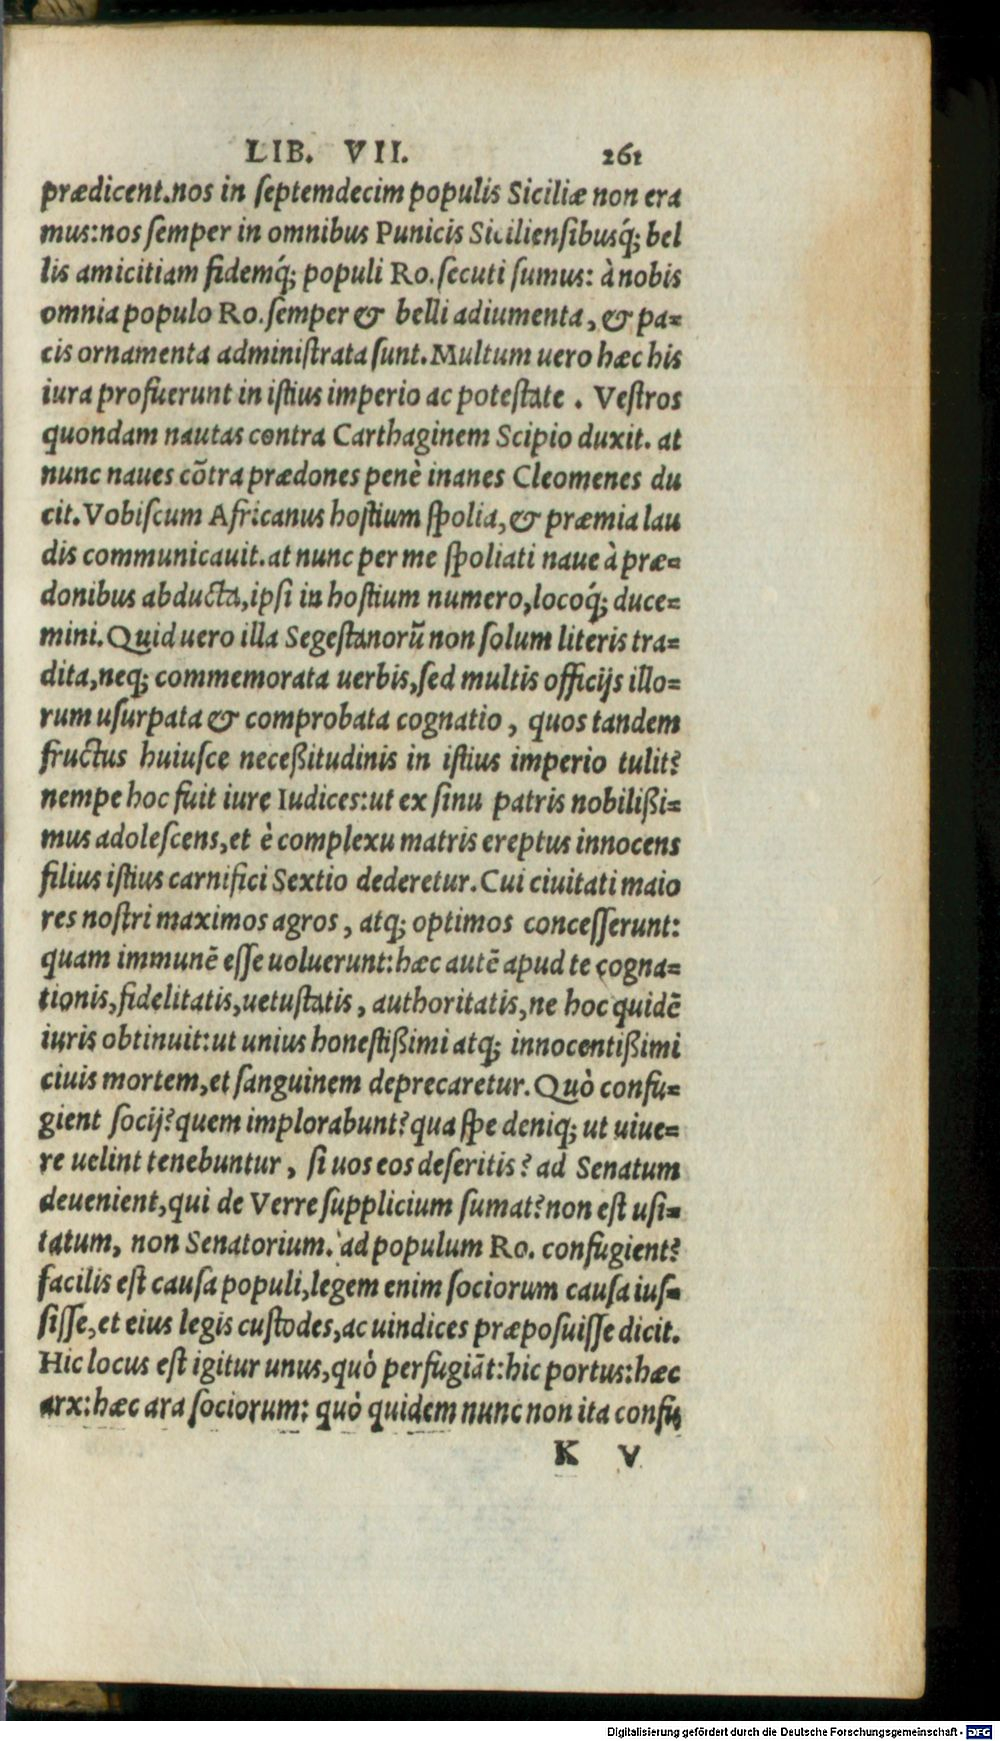 LIB. VII. 261
prædicent.nos in ſeptemdecim populis Siciliæ non era
mus:nos ſemper in omnibus Punicis Sicilienſibusq́; bel
lis amicitiam fidemq́; populi Ro. ſecuti ſumus: à nobis
omnia populo Ro. ſemper & belli adiumenta, & pa-
cis ornamenta adminiſtrata ſunt. Multum uero hæc his
iura profuerunt in iſtius imperio ac poteſtate . Veſtros
quondam nautas contra Carthaginem Scipio duxit. at
nunc naues cõtra prædones penè inanes Cleomenes du
cit. Vobiſcum Africanus hoſtium ſpolia, & præmia lau
dis communicauit. at nunc per me ſpoliati naue à præ-
donibus abducta, ipſi in hoſtium numero, locoq́; duce-
mini. Quid uero illa Segeſtanorũ non ſolum literis tra-
dita, neq; commemorata uerbis, ſed multis officijs illo-
rum uſurpata & comprobata cognatio, quos tandem
fructus huiuſce neceßitudinis in iſtius imperio tulit?
nempe hoc fuit iure Iudices: ut ex ſinu patris nobilißi-
mus adoleſcens, et è complexu matris ereptus innocens
filius iſtius carnifici Sextio dederetur. Cui ciuitati maio
res noſtri maximos agros, atq; optimos conceſſerunt:
quam immunẽ eſſe uoluerunt: hæc autẽ apud te cogna-
tionis, fidelitatis, uetuſtatis, authoritatis, ne hoc quidẽ
iuris obtinuit: ut unius honeſtißimi atq; innocentißimi
ciuis mortem, et ſanguinem deprecaretur. Quò confu-
gient ſocij? quem implorabunt? qua ſpe deniq; ut uiue-
re uelint tenebuntur, ſi uos eos deſeritis? ad Senatum
deuenient, qui de Verre ſupplicium ſumat? non eſt uſi-
tatum, non Senatorium. ad populum Ro. confugient?
facilis eſt cauſa populi, legem enim ſociorum cauſa iuſ-
ſiſſe, et eius legis cuſtodes, ac uindices præpoſuiſſe dicit.
Hic locus eſt igitur unus, quò perfugiãt: hic portus: hæc
arx: hæc ara ſociorum: quò quidem nunc non ita confu
K V
Digitalisierung gefördert durch die Deutsche Forschungsgemeinschaft - DFG